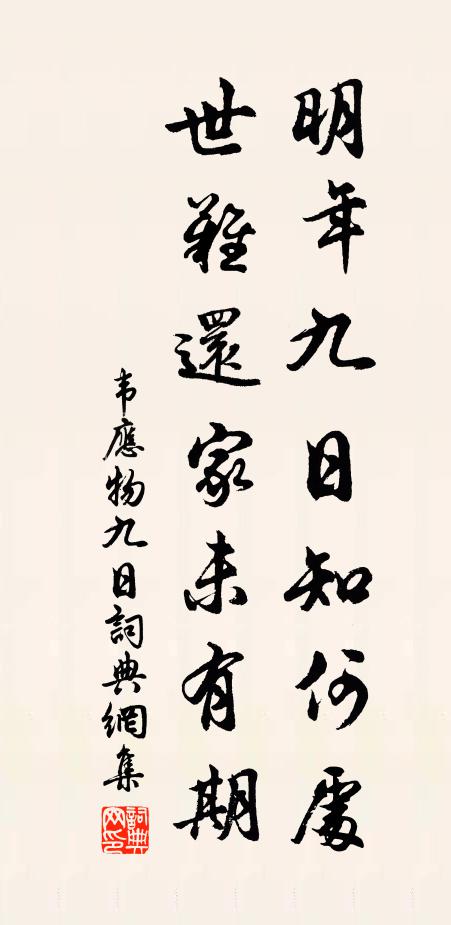 明年九日知何處
世難還家未有期
韦應物九日詞典網集
詞典网印